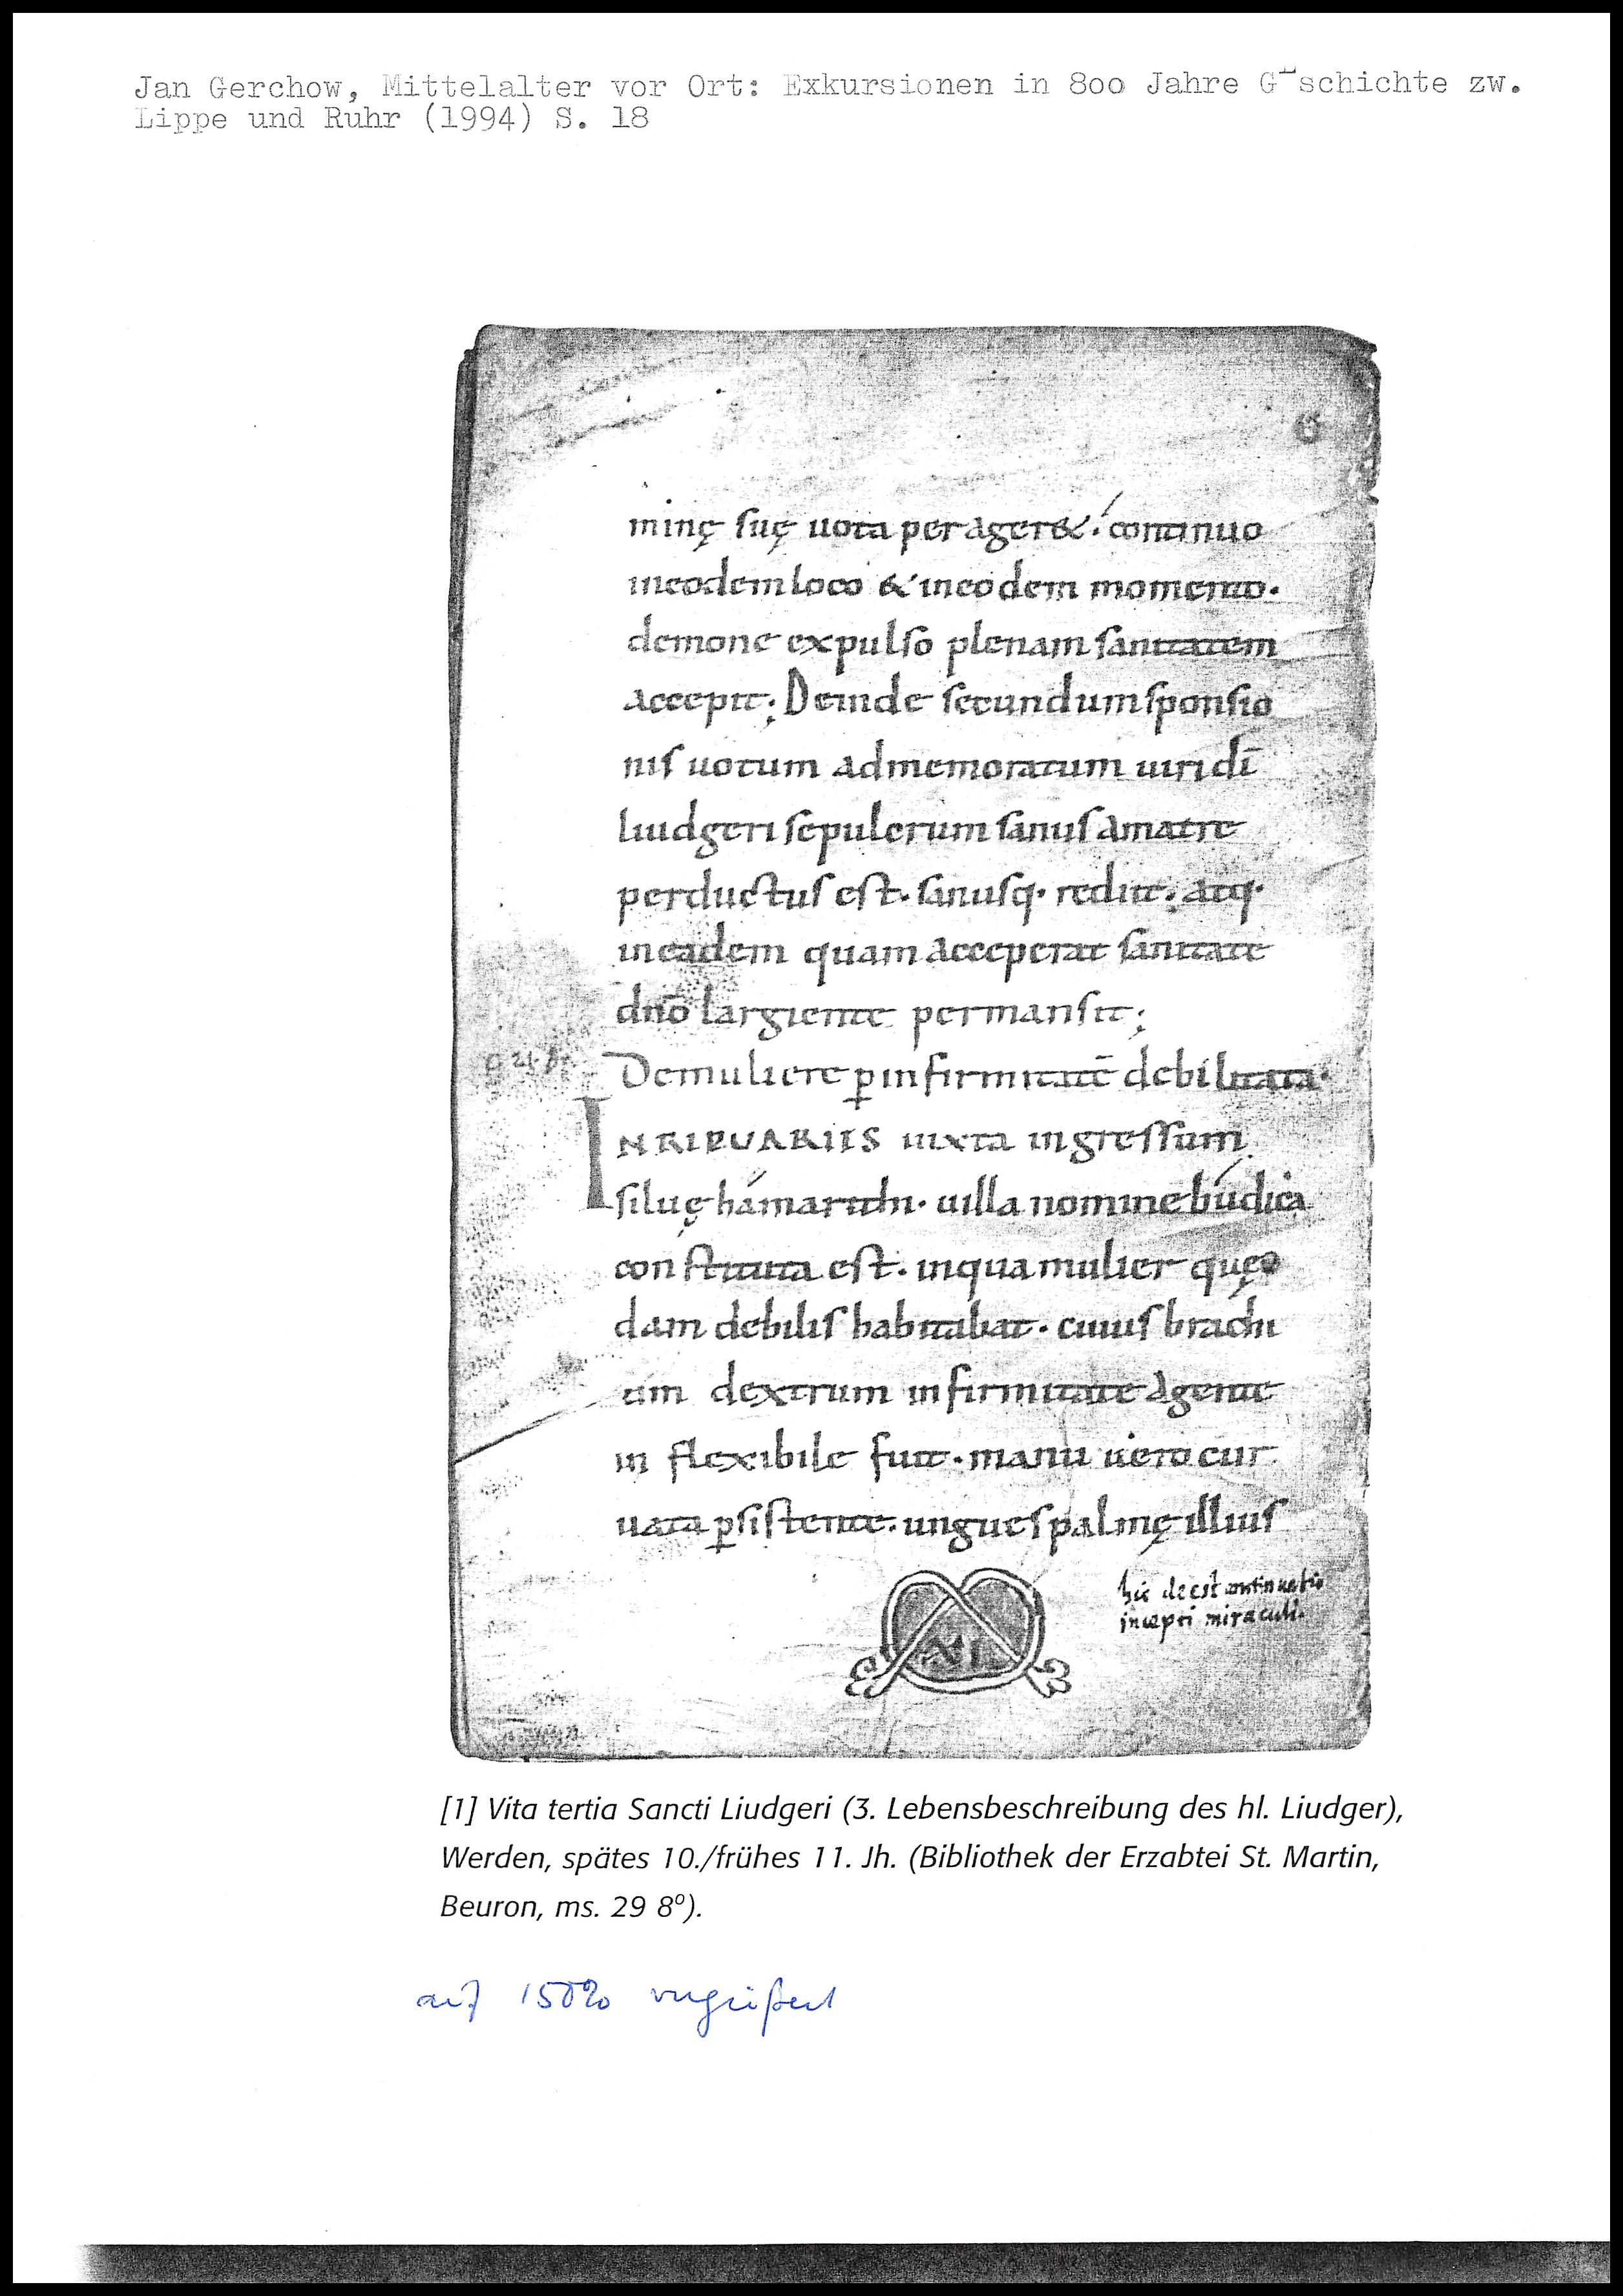 Jan Gerchow, Mittelalter vor Ort: Exkursionen in 800 Jahre Geschichte zw.
Lippe und Ruhr (1994) S. 18
minę suę uota perager&. continuo
ineodem loco & ineodem momento.
demone expulso plenam sanitatem
accepit; Deinde secundum sponsio
nis uotum admemoratum uiri dī
liudgeri sepulcrum sanus amatre
perductus est. sanusq· rediit; atq·
ineadem quam acceperat sanitate
dnō largiente permansit;
Demuliere ꝑ infirmitatē debilitata·
INRIPUARIIS iuxta ingressum
siluę hámarithi· uilla nomine búdica
constituta est. inqua mulier quę
dam debilis habitabat. cuius brachi
um dextrum infirmitate agente
inflexibile fuit. manu uero cur
uata ꝑsistente. ungues palmę illius
hic deest continuatio
incepti miraculi.
XI
[1] Vita tertia Sancti Liudgeri (3. Lebensbeschreibung des hl. Liudger),
Werden, spätes 10./frühes 11. Jh. (Bibliothek der Erzabtei St. Martin,
Beuron, ms. 29 8º).
auf 150% vergrößert